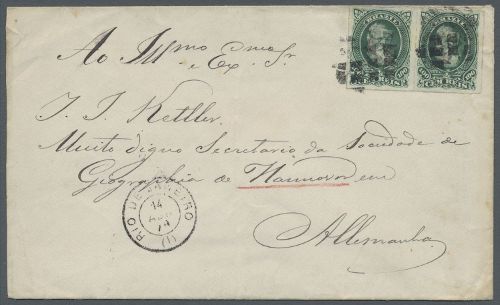 Ao Illmo Exmo Sr.
J. J. Kettler.
Muito digno Secretario da Sociedade de
Geographia de Hannover em
Allemanha
RIO DE JANEIRO
14
74
(1)
100 100